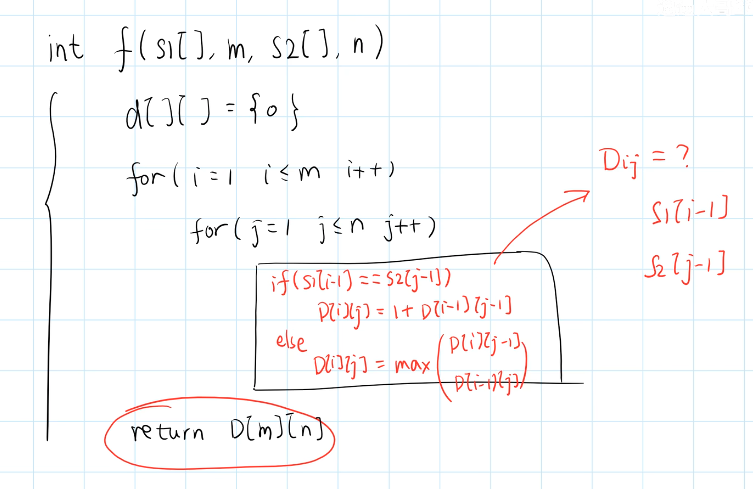 int f(S1[], m, S2[], n)
d[][] = {0}
for( i=1 i≤m i++)
for( j=1 j≤n j++)
if(S1[i-1] == S2[j-1])
D[i][j] = 1 + D[i-1][j-1]
else
D[i][j] = max(D[i][j-1],
D[i-1][j])
return D[m][n]
Dij = ?
S1[i-1]
S2[j-1]